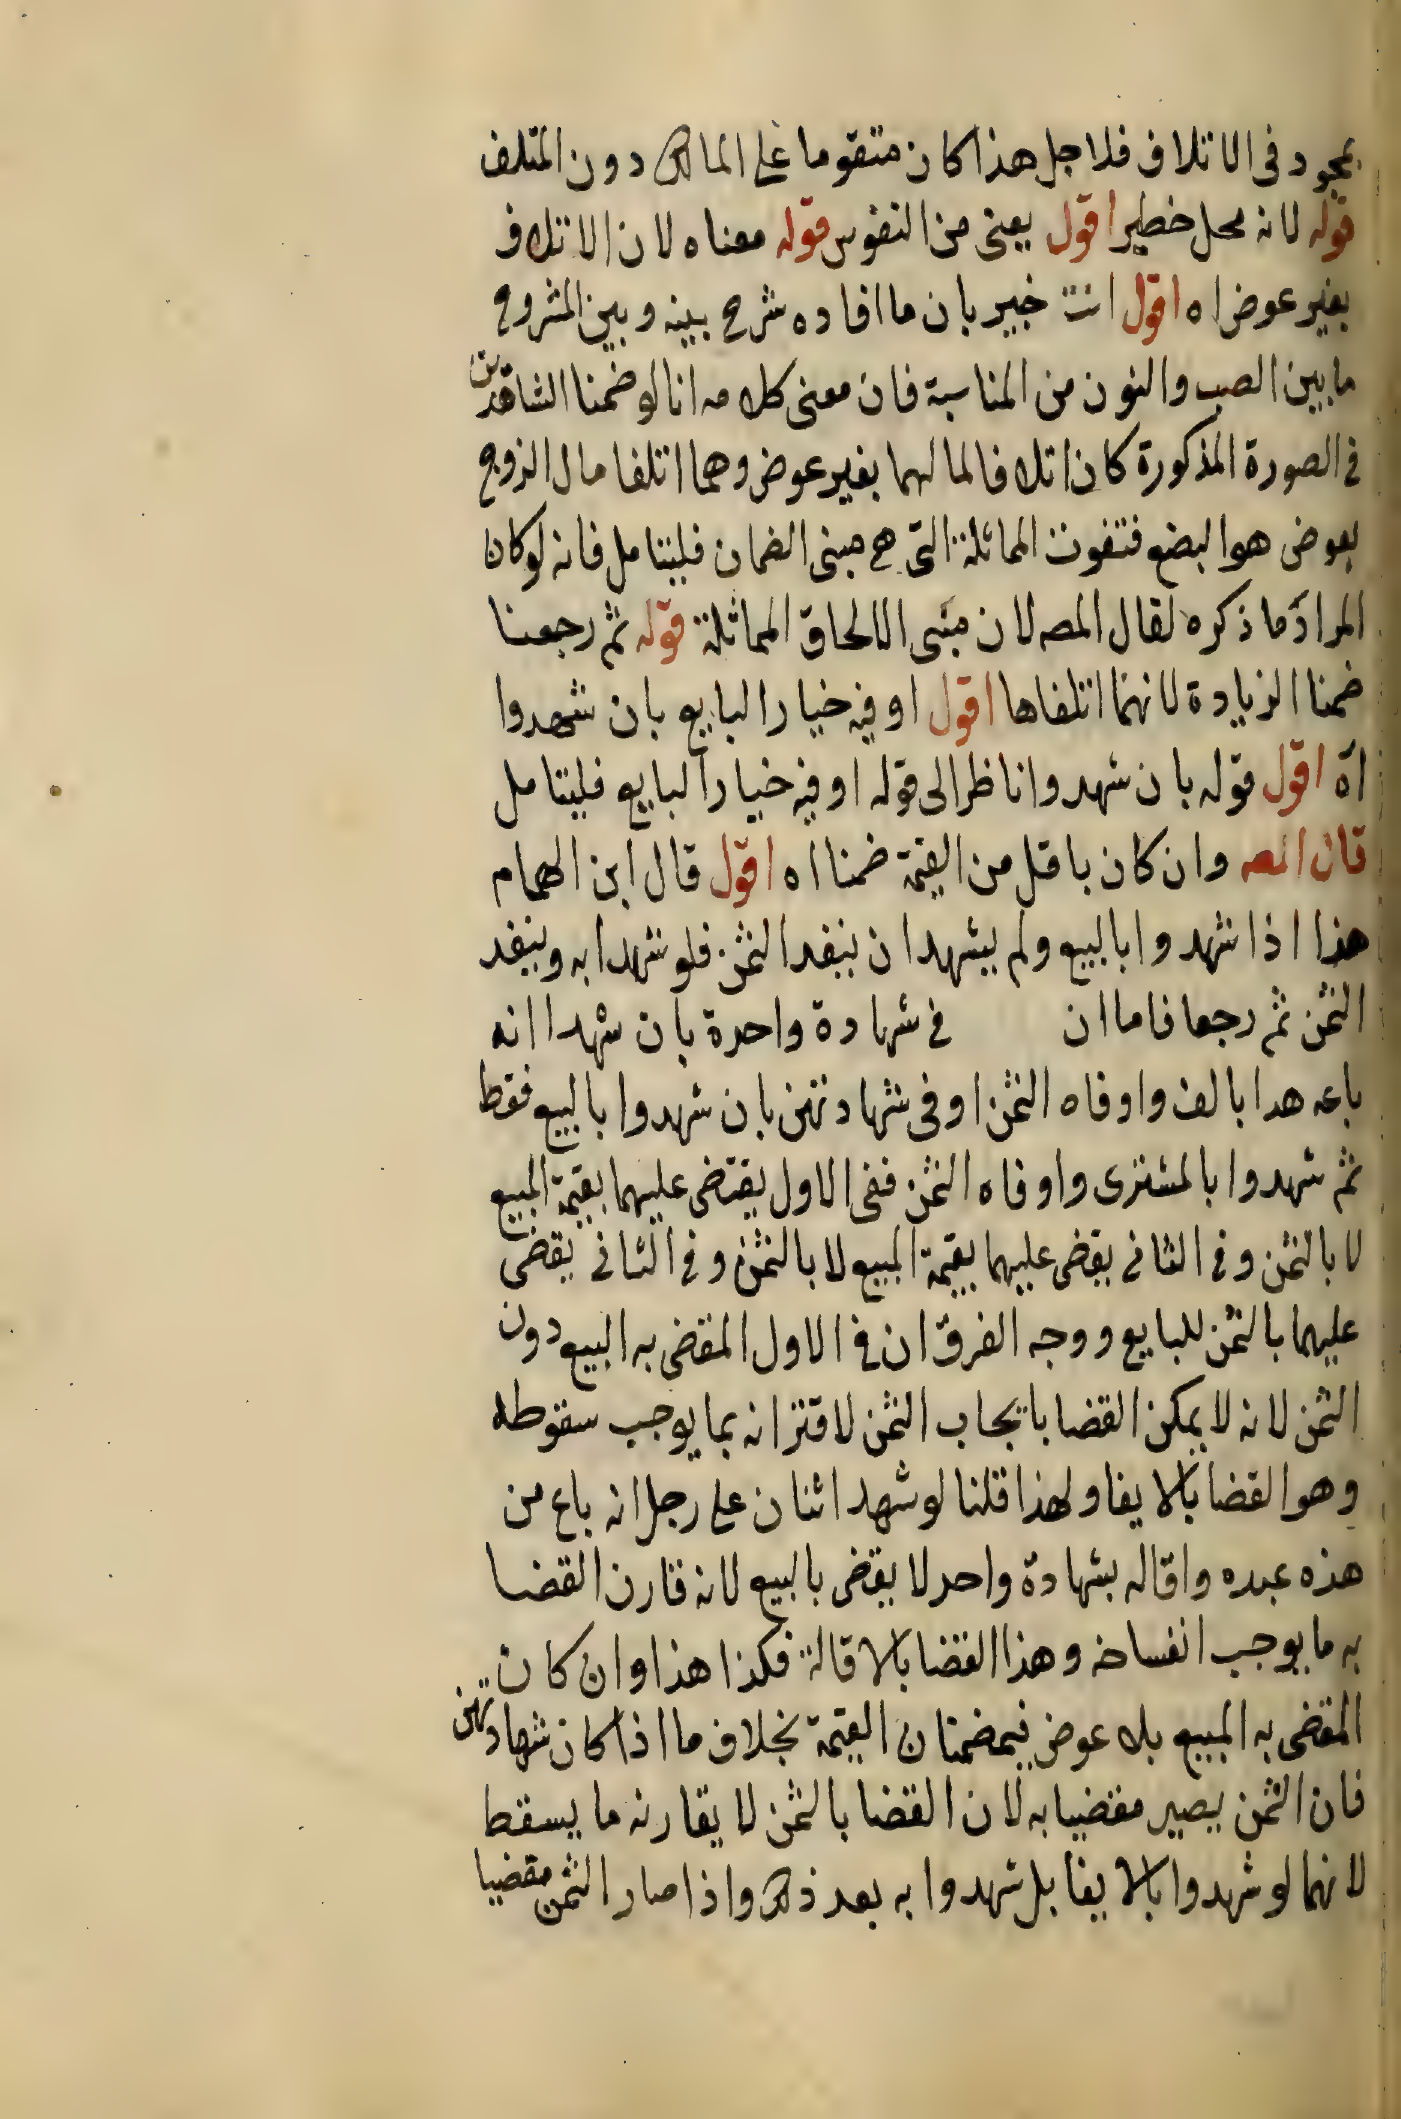 بمجود فى الاتلاف فلاجل هذا كان متقوما على المالك دون المتلف
قوله لانه محل خطير اقول يعنى من النفوس قوله معناه لان الاتلاف
بغير عوض اه اقول انت خبير بان ما افاده شرح بينه وبين المشروح
ما بين الضب والنون من المناسبة فان معنى كلامه انا لو ضمنا الشاهدين
فى الصورة المذكورة كان اتلافا لمالهما بغير عوض وهما اتلفا مال الزوج
بعوض هو البضع فتفوت المماثلة التى هى مبنى الضمان فليتامل فانه لو كان
المراد ما ذكره لقال المصه لان مبنى الالحاق المماثلة قوله ثم رجعنا
ضمنا الزيادة لانهما اتلفاها اقول او فيه خيار البايع بان شهدوا
اه اقول قوله بان شهدوا ناظر الى قوله او فيه خيار البايع فليتامل
قال المصه وان كان باقل من القيمة ضمنا اه اقول قال ابن الهمام
هذا اذا شهدوا بالبيع ولم يشهدا ن بنفد الثمن فلو شهدا به وبنفد
الثمن ثم رجعا فاما ان فى شهادة واحدة بان شهدا انه
باعه هدا بالف واوفاه الثمن او فى شهادتين بان شهدوا بالبيع فقط
ثم شهدوا بالمشترى واوفاه الثمن ففى الاول يقتضى عليهما بقيمة المبيع
لا بالثمن وفى الثانى يقضى عليهما بقيمة المبيع لا بالثمن وفى الثانى يقضى
عليهما بالثمن للبايع ووجه الفرق ان فى الاول المقضى به البيع دون
الثمن لانه لا يمكن القضا بايجاب الثمن لاقترانه بما يوجب سقوطه
وهو القضا بالايفا ولهذا قلنا لو شهد اثنان على رجل انه باع من
هذه عبده واقاله بشهادة واحد لا يقضى بالبيع لانه قارن القضا
به ما يوجب انفساخه وهذا القضا بالاقالة فكذا هذا وان كان
المقضى به المبيع بلا عوض فيضمنان القيمة بخلاف ما اذا كان شهادتين
فان الثمن يصير مقضيا به لان القضا بالثمن لا يقارنه ما يسقط
لانهما لو شهدوا بالايفا بل شهدوا به بعد ذلك واذا صار الثمن مقضيا